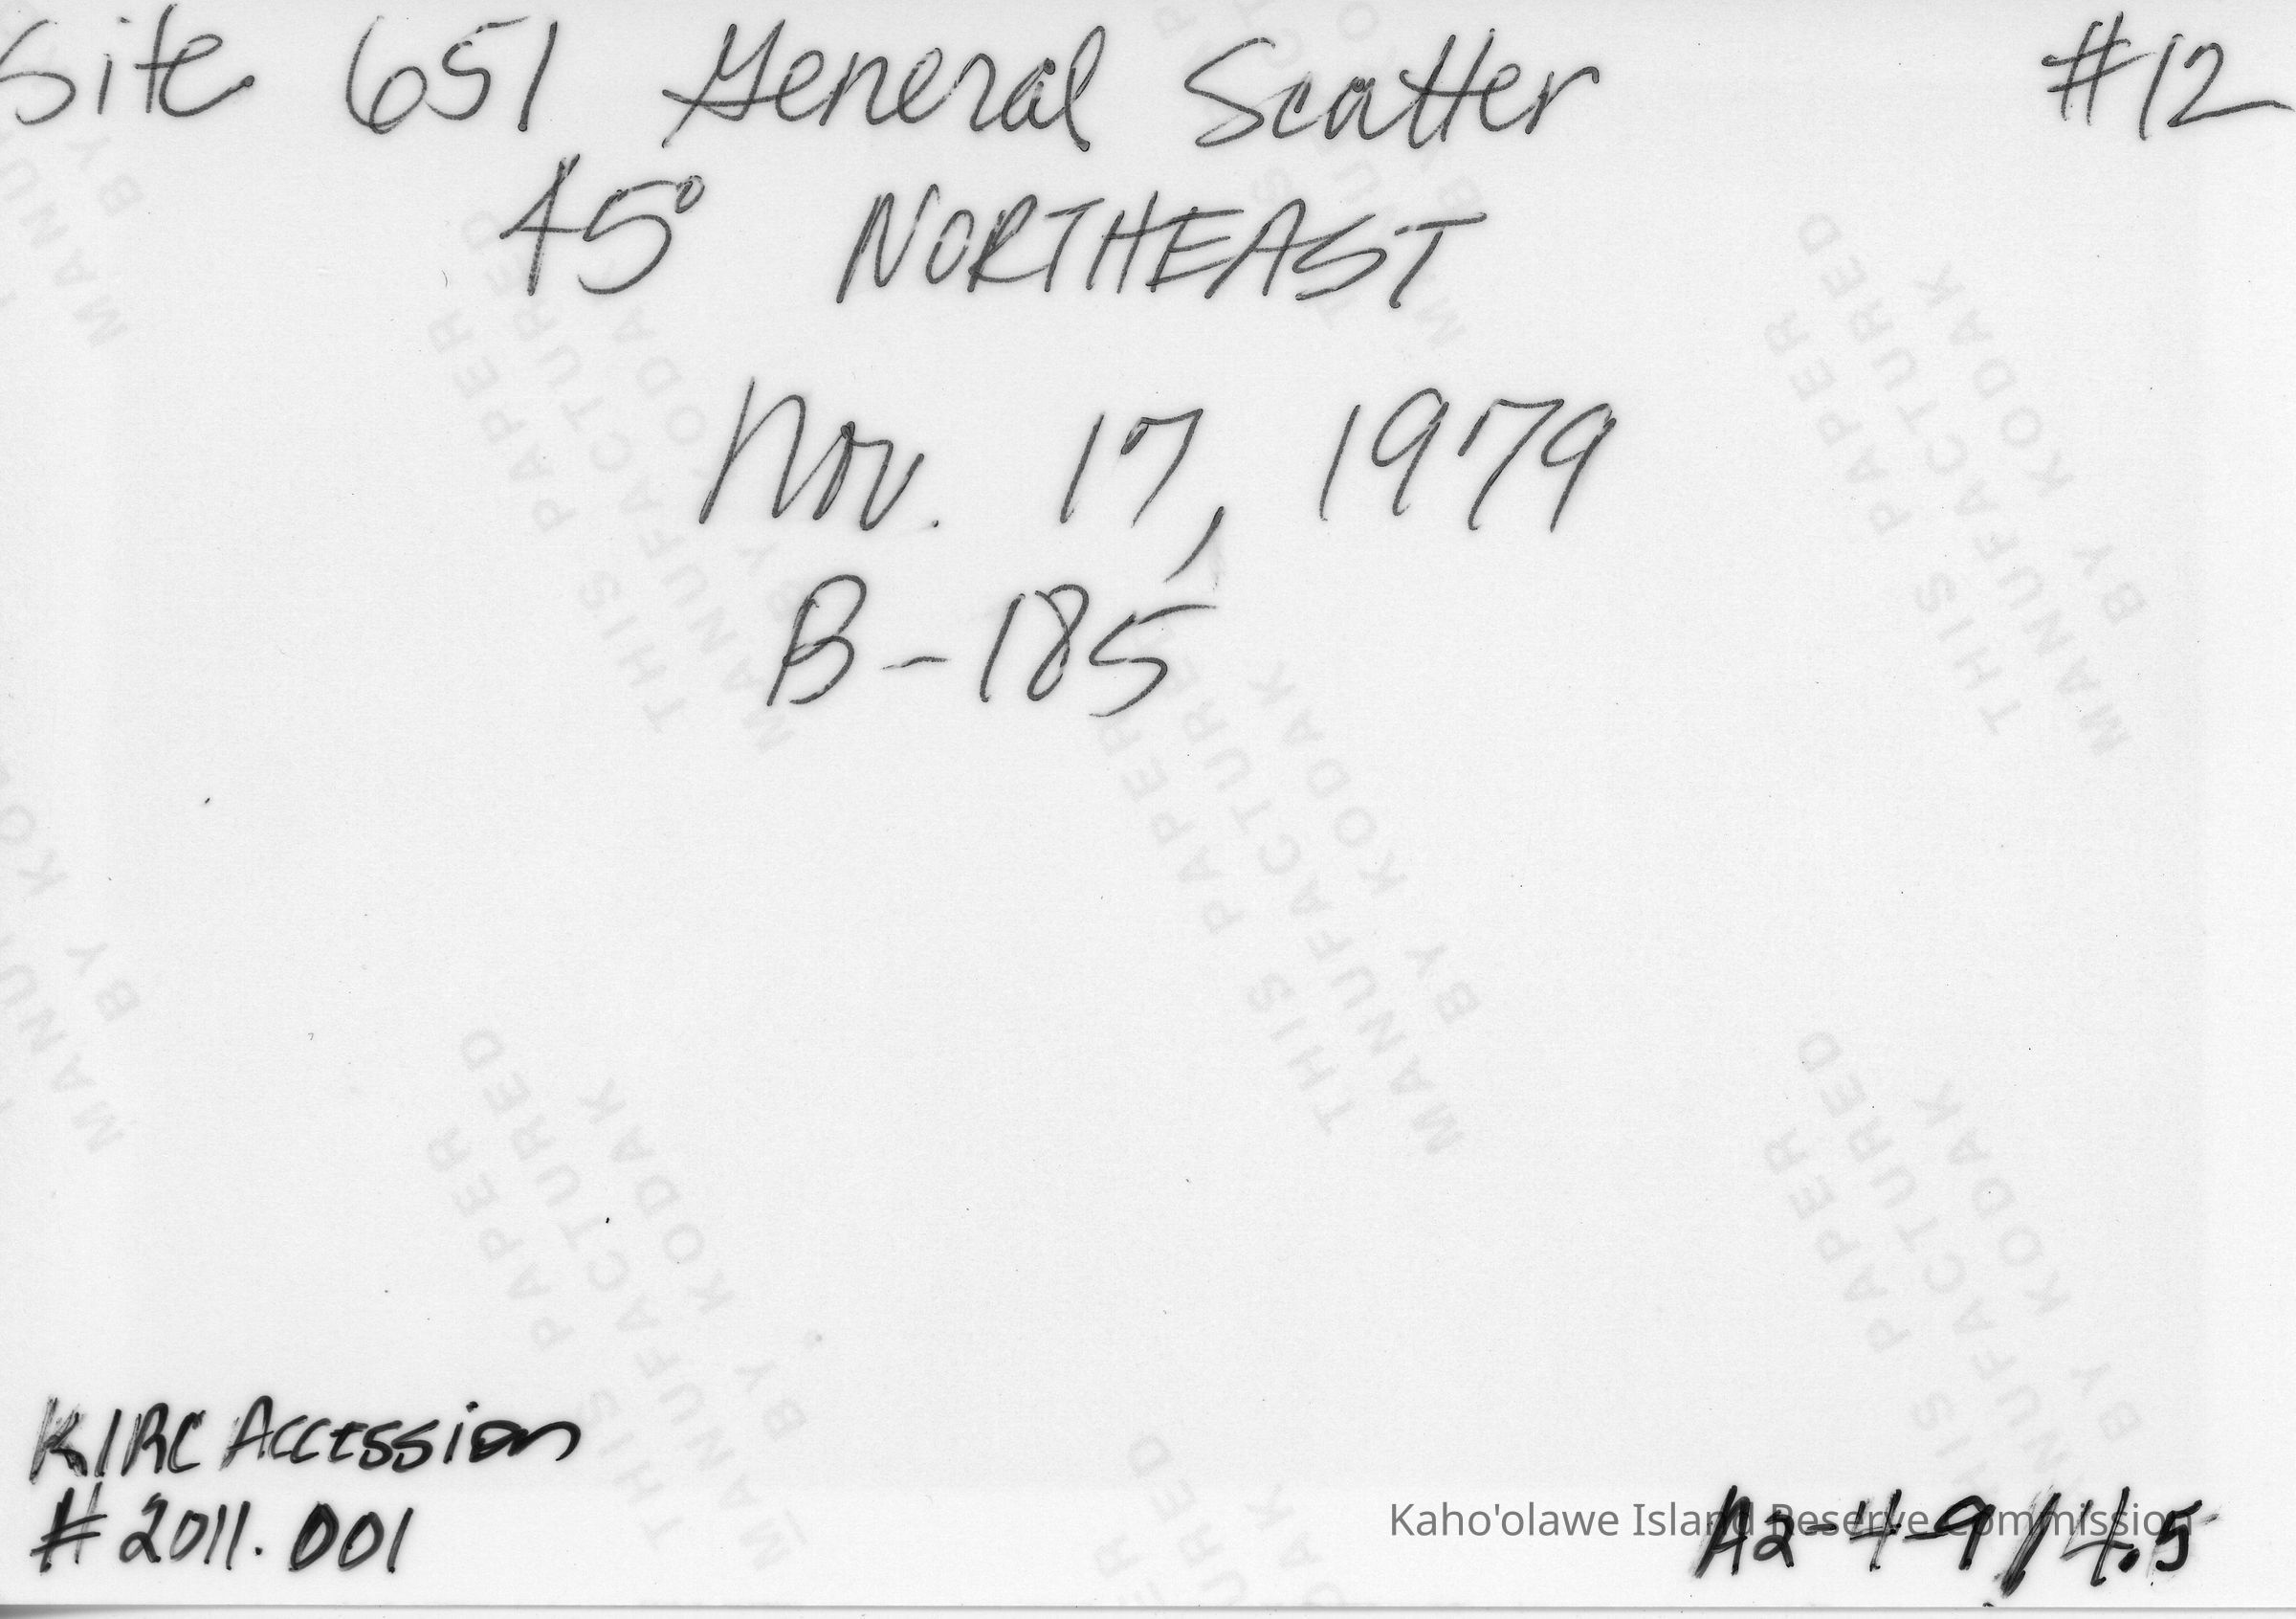 Site 651 General Scatter #12
45° NORTHEAST
Nov. 17, 1979
B-185
KIRC Accession
# 2011.001
Kaho'olawe Island Reserve Commission
A2-4-9/4.5
THIS PAPER
MANUFACTURED
BY KODAK